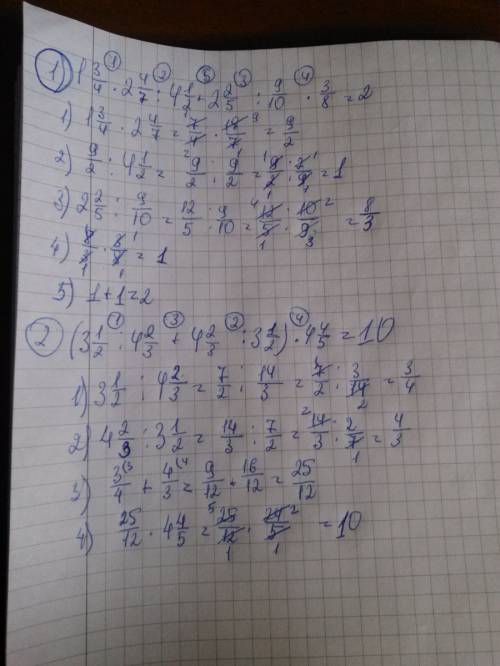 1) 1 3/4 · 2 4/7 : 4 1/2 + 2 2/5 : 9/10 · 3/8 = 2
1) 1 3/4 · 2 4/7 = 7/4 · 18/7 = 9/2
2) 9/2 : 4 1/2 = 9/2 : 9/2 = 9/2 · 2/9 = 1
3) 2 2/5 : 9/10 = 12/5 : 9/10 = 12/5 · 10/9 = 8/3
4) 8/3 · 3/8 = 1
5) 1 + 1 = 2
2 (3 1/2 : 4 2/3 + 4 2/3 : 3 1/2) · 4 4/5 = 10
1) 3 1/2 : 4 2/3 = 7/2 : 14/3 = 7/2 · 3/14 = 3/4
2) 4 2/3 : 3 1/2 = 14/3 : 7/2 = 14/3 · 2/7 = 4/3
3) 3/4 + 4/3 = 9/12 + 16/12 = 25/12
4) 25/12 · 4 4/5 = 25/12 · 24/5 = 10